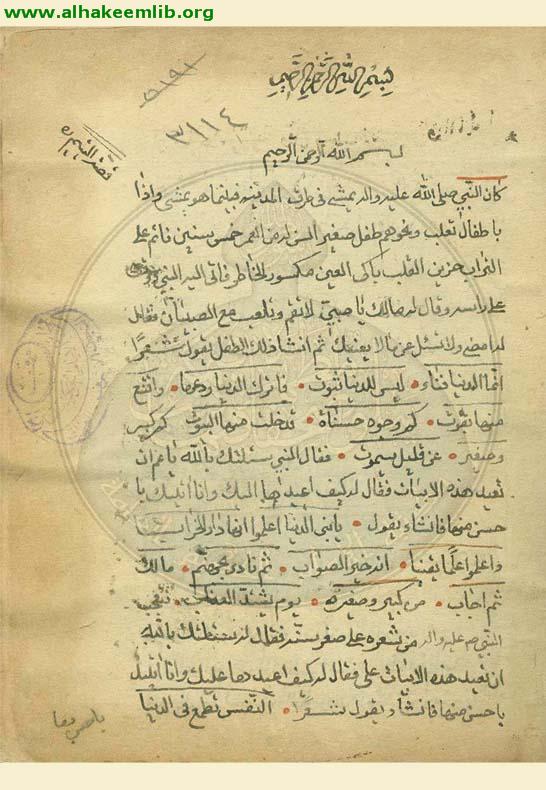 www.alhakeemlib.org
بسم الله الرحمن الرحيم
٥١٩١
٣١١٤
بسم الله الرحمن الرحيم
كان النبي صلى الله عليه واله يمشي في طرق المدينه فبينما هو يمشي واذا
باطفال تعلب ونحوهم طفل صغير السن له من العمر خمس سنين قائم على
التراب حزين القلب باكى العين مكسور الخاطر فاتى اليه النبي
على راسه وقال له مالك يا صبي لا تقم وتلعب مع الصبيان فقال
له امضي ولا تسئل عن ما لا يعنيك ثم انشا ذلك الطفل يقول شعرا
انما الدنيا فناء ليس للدنيا ثبوت فاترك الدنيا ودعها واقنع
منها بقوت كم وجوه حسناة قد خلت منها البيوت كم كبير
وصغير عن قليل سيموت فقال النبي سئلتك بالله يا غلام ان
تعيد هذه الابيات فقال له كيف اعيدها اليك وانا اتيك با
حسن منها فانشاء يقول يا بنى الدنيا اعلموا انها دار الخراب
واعلموا علما يقينا انه خير الصواب ثم نادى مالك
ثم اجاب من كبير وصغيره يوم يشتد العذاب فتعجب
النبي ص عليه واله من شعره على صغر سنه فقال له سئلتك بالله
ان تعيد هذه الابيات على فقال له كيف اعيدها عليك وانا اتيك
باحسن منها فانشاء ويقول شعرا النفس تطمع في الدنيا